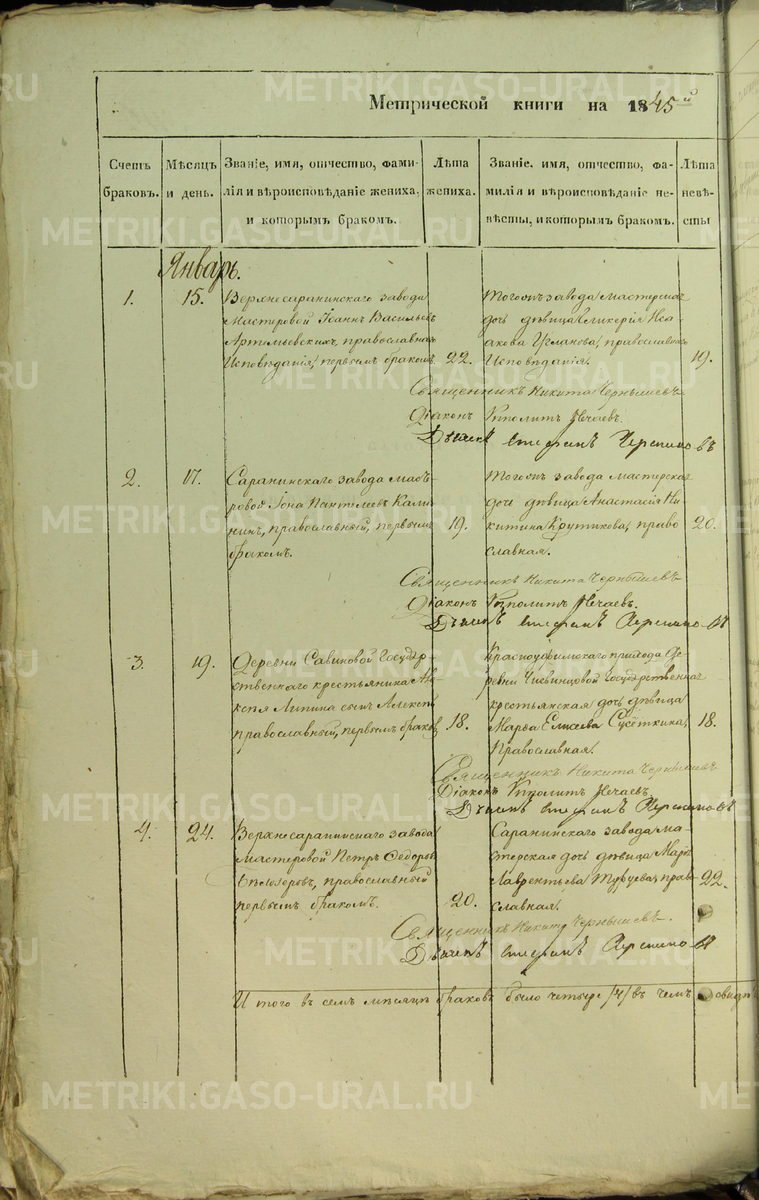 Метрической книги на 1845й
Счетъ браковъ.
Мѣсяцъ и день.
Званіе, имя, отчество, фами-
лія и вѣроисповѣданіе жениха,
и которымъ бракомъ.
Лѣта жениха.
Званіе, имя, отчество, фа-
милія и вѣроисповѣданіе не-
вѣсты, и которымъ бракомъ.
Лѣта невѣ-
сты
Январь.
1.
15.
Верхнесаранинскаго завода
мастеровой Іоаннъ Васильевъ
Артемьевскихъ, православнаго
Исповѣданія, первымъ бракомъ
22.
Тогожъ завода мастерская
дочь дѣвица Гликерія Иса-
акова Угланова, православнаго
Исповѣданія.
19.
Священникъ Никита Чернышевъ
Діаконъ Ипполитъ Нечаевъ.
Дьячекъ Стефанъ
2.
17.
Саранинскаго завода масте-
ровой Іона Пантелеевъ Кали-
нинъ, православный, первымъ
бракомъ.
19.
Тогожъ завода мастерская
дочь дѣвица Анастасія Ни-
китина Крутикова, право
славная.
20.
Священникъ Никита Чернышевъ
Діаконъ Ипполитъ Нечаевъ.
Дьячекъ Стефанъ
3.
19.
Деревни Савиновой Государ-
ственнаго крестьянина
Липина сынъ Алексей
православный, первымъ бракомъ
18.
Красноуфимскаго прихода де-
ревни Государственнаго
крестьянская дочь дѣвица
Марѳа Елисеева
Православная.
18.
Священникъ Никита Чернышевъ
Діаконъ Ипполитъ Нечаевъ
Дьячекъ Стефанъ
4.
24.
Верхнесаранинскаго завода
мастеровой Петръ Ѳедоровъ
православный
первымъ бракомъ.
20.
Саранинскаго завода ма-
стерская дочь дѣвица
Лаврентьева прав-
славная.
22.
Священникъ Никита Чернышевъ.
Дьячекъ Стефанъ
Итого въ семъ мѣсяцѣ браковъ было четыре /4/ въ чемъ
METRIKI.GASO-URAL.RU